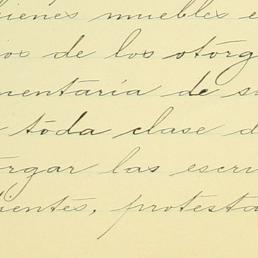 bienes muebles e
ios de los otórg
mentaria de su
tóda clase d
órgar las escri
ientes, protesta